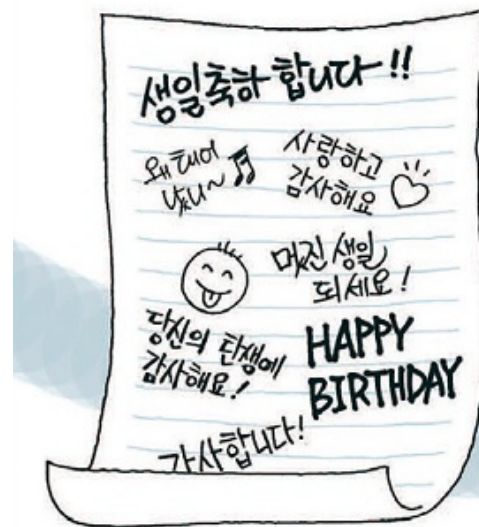 생일축하 합니다!!
왜 태어
났니~
사랑하고
감사해요
멋진 생일
되세요!
당신의 탄생에
감사해요!
HAPPY
BIRTHDAY
가사합니다!